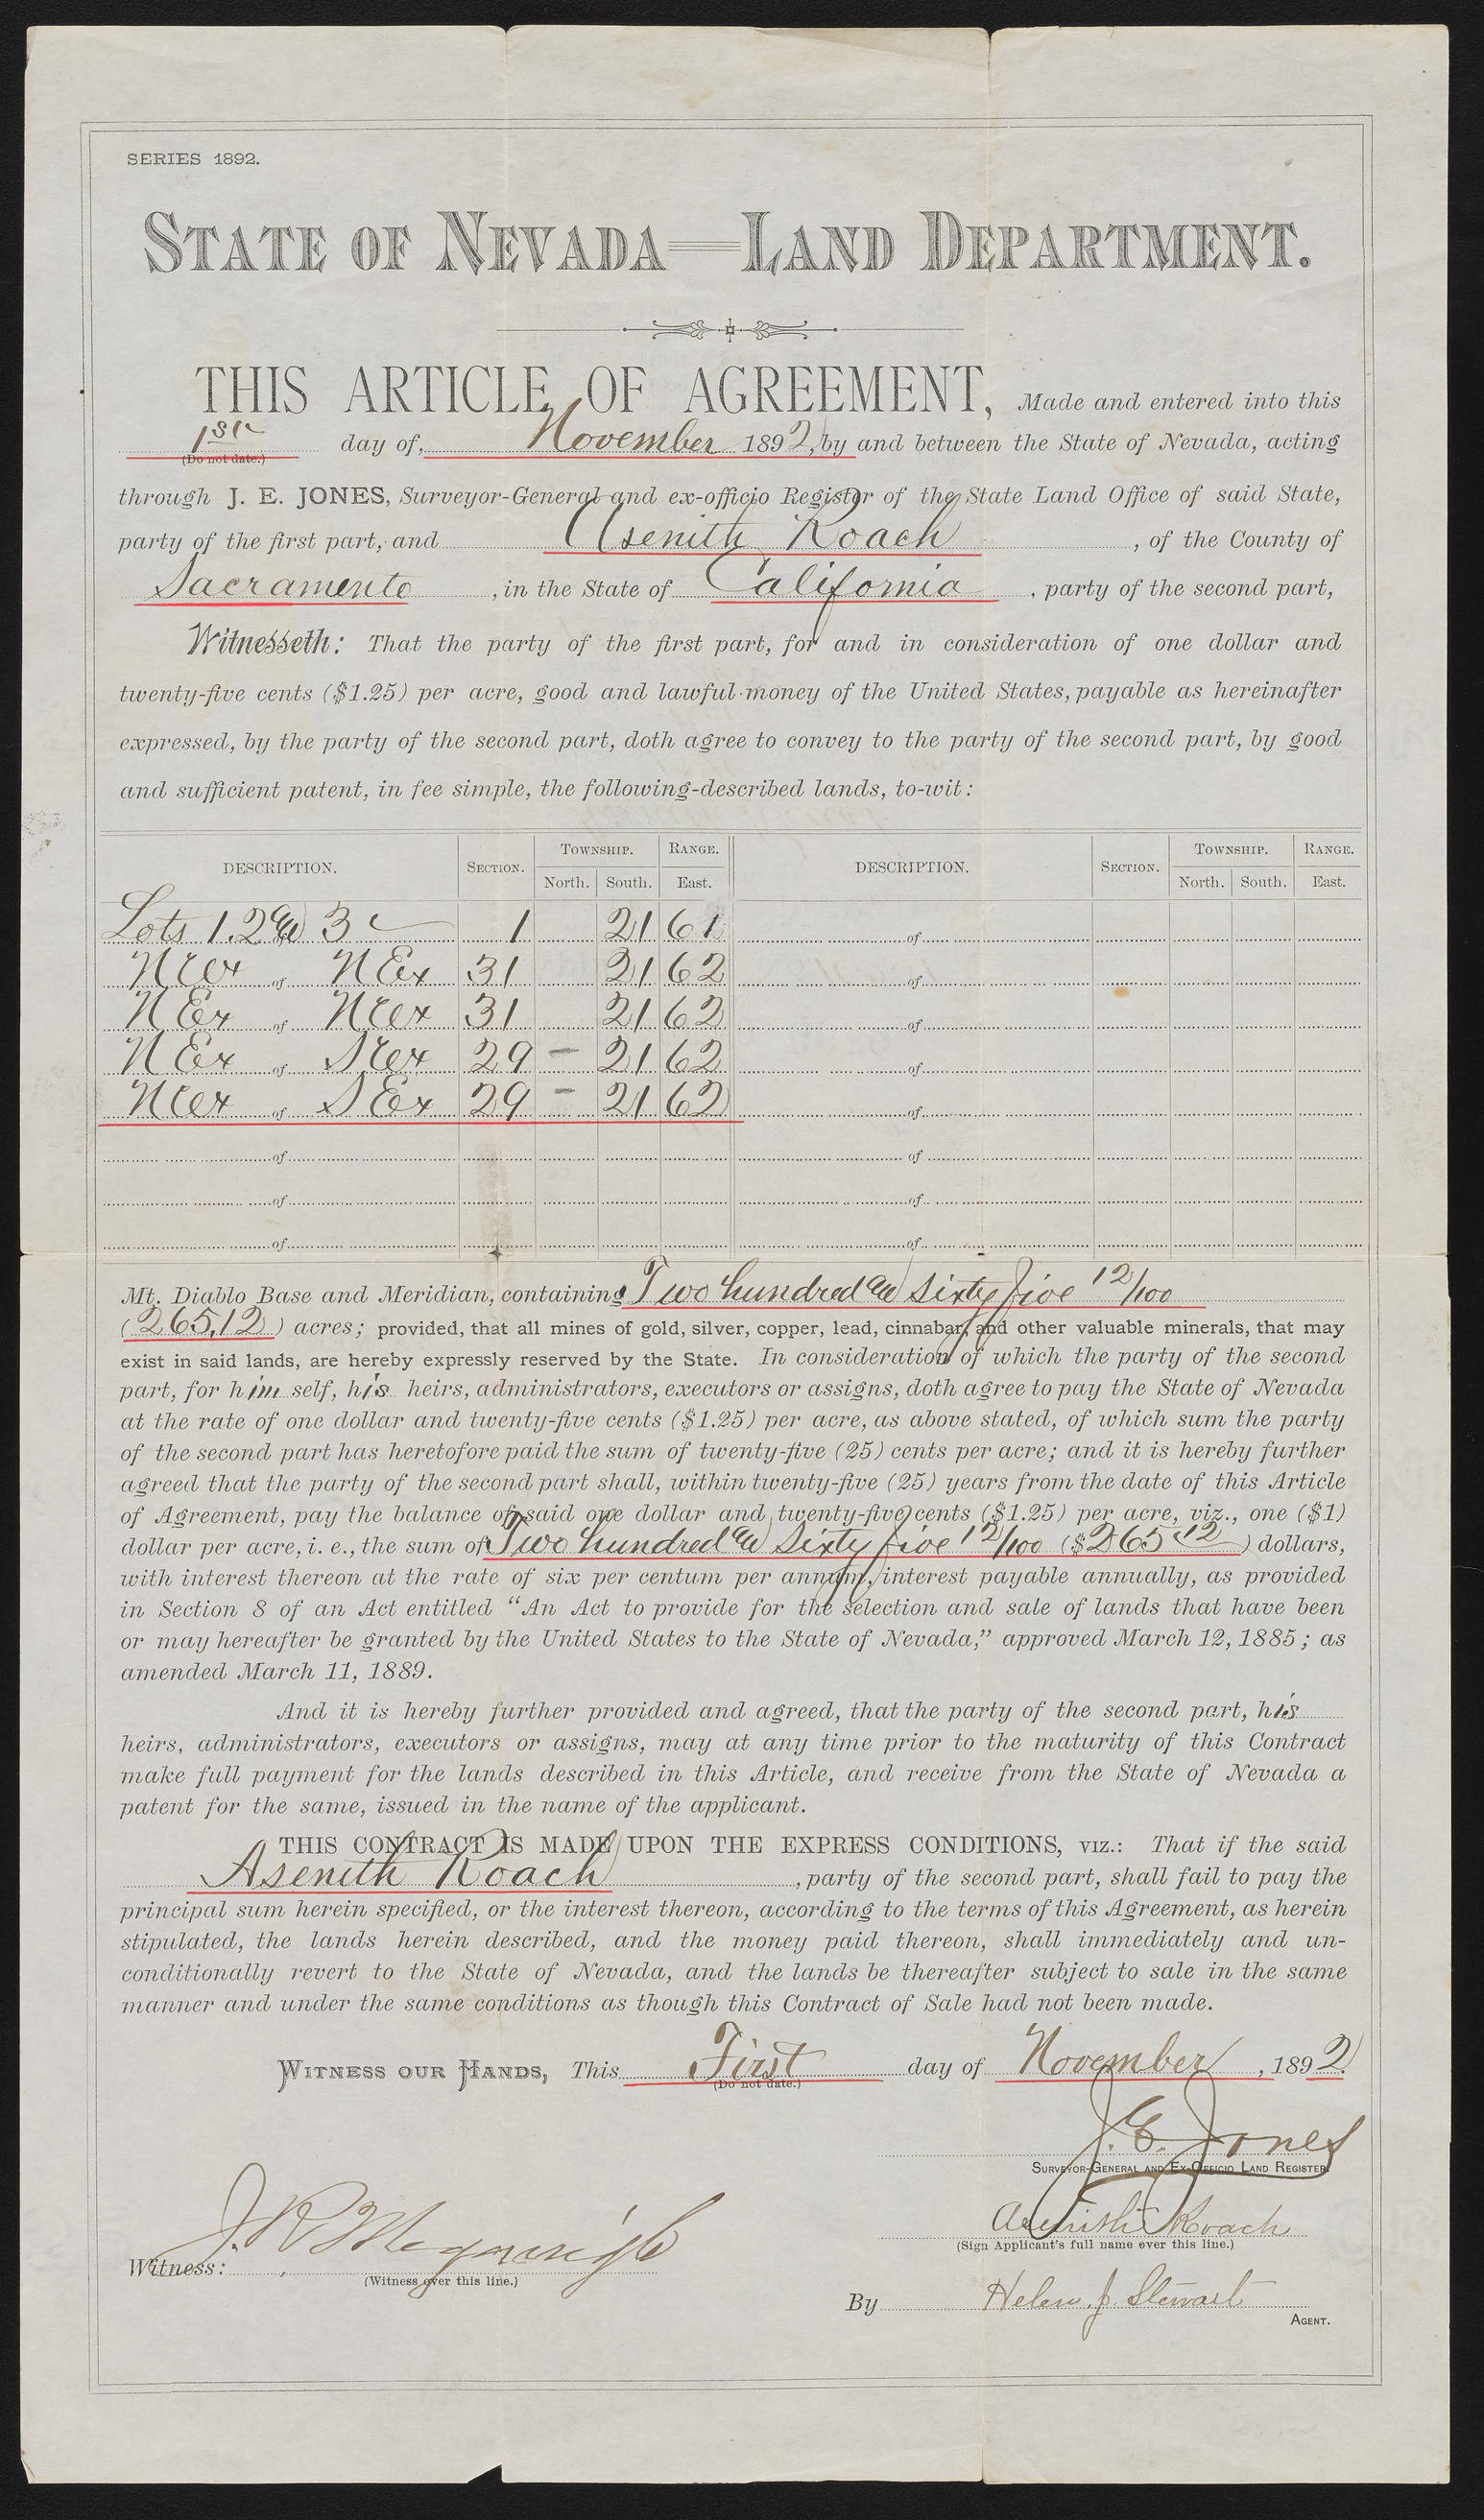 SERIES 1892.
STATE OF NEVADA—LAND DEPARTMENT.
THIS ARTICLE OF AGREEMENT, Made and entered into this
1st day of, November 1892, by and between the State of Nevada, acting
(Do not date.)
through J. E. JONES, Surveyor-General and ex-officio Register of the State Land Office of said State,
party of the first part, and Asenith Roach, of the County of
Sacramento, in the State of California, party of the second part,
Witnesseth: That the party of the first part, for and in consideration of one dollar and
twenty-five cents ($1.25) per acre, good and lawful money of the United States, payable as hereinafter
expressed, by the party of the second part, doth agree to convey to the party of the second part, by good
and sufficient patent, in fee simple, the following-described lands, to-wit:
DESCRIPTION. SECTION. TOWNSHIP. RANGE. DESCRIPTION. SECTION. TOWNSHIP. RANGE.
North. South. East. North. South. East.
Lots 1.2 & 3 1 21 61 of
NW¼ of NE¼ 31 21 62 of
NE¼ of NW¼ 31 21 62 of
NE¼ of SW¼ 29 – 21 62 of
NW¼ of SE¼ 29 – 21 62 of
of of
of of
of of
Mt. Diablo Base and Meridian, containing Two hundred & sixty five 12/100
(265.12) acres; provided, that all mines of gold, silver, copper, lead, cinnabar, and other valuable minerals, that may
exist in said lands, are hereby expressly reserved by the State. In consideration of which the party of the second
part, for himself, his heirs, administrators, executors or assigns, doth agree to pay the State of Nevada
at the rate of one dollar and twenty-five cents ($1.25) per acre, as above stated, of which sum the party
of the second part has heretofore paid the sum of twenty-five (25) cents per acre; and it is hereby further
agreed that the party of the second part shall, within twenty-five (25) years from the date of this Article
of Agreement, pay the balance of said one dollar and twenty-five cents ($1.25) per acre, viz., one ($1)
dollar per acre, i. e., the sum of Two hundred & sixty five 12/100 ($265 12) dollars,
with interest thereon at the rate of six per centum per annum, interest payable annually, as provided
in Section 8 of an Act entitled "An Act to provide for the selection and sale of lands that have been
or may hereafter be granted by the United States to the State of Nevada," approved March 12, 1885; as
amended March 11, 1889.
And it is hereby further provided and agreed, that the party of the second part, his
heirs, administrators, executors or assigns, may at any time prior to the maturity of this Contract
make full payment for the lands described in this Article, and receive from the State of Nevada a
patent for the same, issued in the name of the applicant.
THIS CONTRACT IS MADE UPON THE EXPRESS CONDITIONS, VIZ.: That if the said
Asenith Roach, party of the second part, shall fail to pay the
principal sum herein specified, or the interest thereon, according to the terms of this Agreement, as herein
stipulated, the lands herein described, and the money paid thereon, shall immediately and un-
conditionally revert to the State of Nevada, and the lands be thereafter subject to sale in the same
manner and under the same conditions as though this Contract of Sale had not been made.
WITNESS OUR HANDS, This First day of November, 1892.
(Do not date.)
J. E. Jones
SURVEYOR-GENERAL AND EX-OFFICIO LAND REGISTER.
Asenith Roach
(Sign Applicant's full name over this line.)
Witness: J. R.
(Witness over this line.)
By Helen. J. Stewart
AGENT.